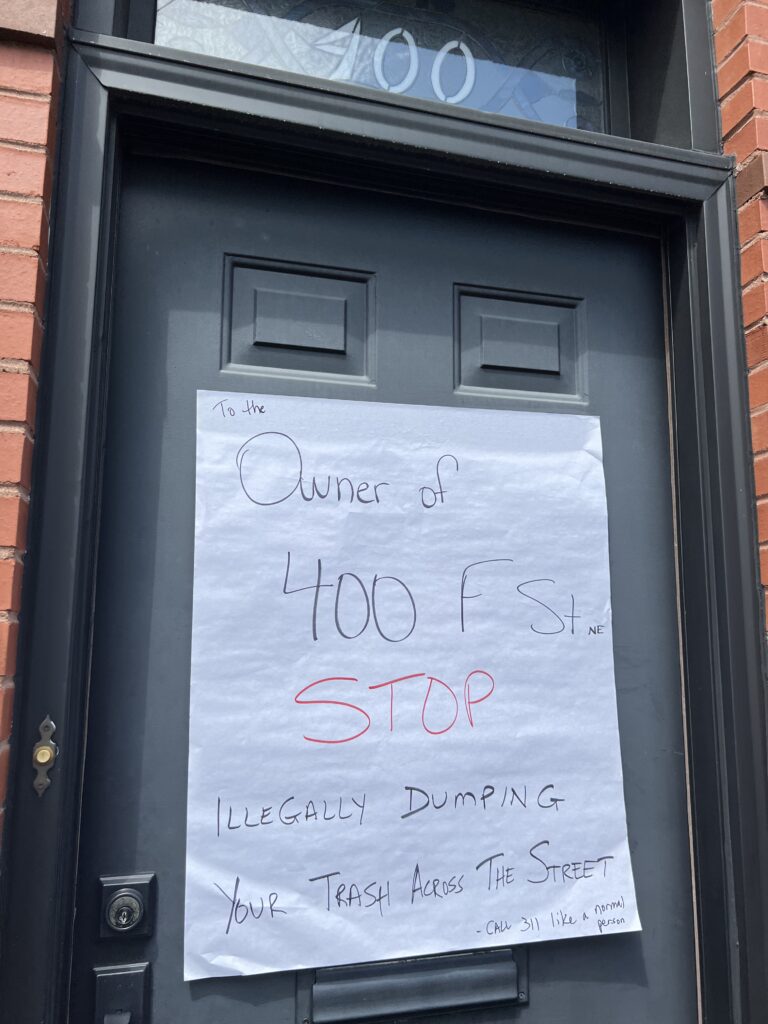 400
To the
Owner of
400 F St NE
STOP
ILLEGALLY DUMPING
YOUR TRASH ACROSS THE STREET
- CALL 311 like a normal
person